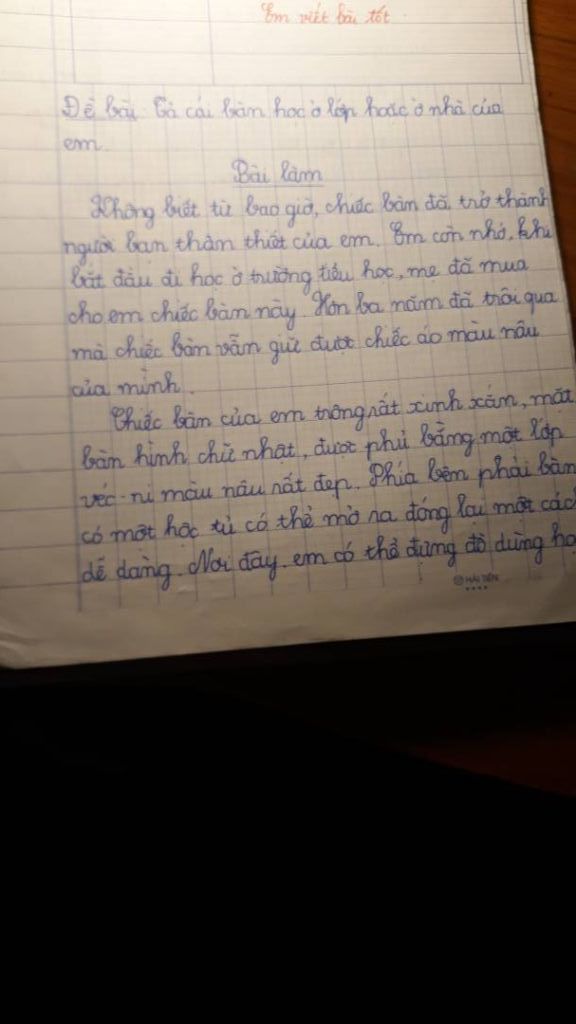 Em viết bài tốt.
Đề bài: Tả cái bàn học ở lớp hoặc ở nhà của
em.
Bài làm
Không biết từ bao giờ, chiếc bàn đã trở thành
người bạn thân thiết của em. Em còn nhớ, khi
bắt đầu đi học ở trường tiểu học, mẹ đã mua
cho em chiếc bàn này. Hơn ba năm đã trôi qua
mà chiếc bàn vẫn giữ được chiếc áo màu nâu
của mình.
Chiếc bàn của em trông rất xinh xắn, mặt
bàn hình chữ nhật, được phủ bằng một lớp
véc-ni màu nâu rất đẹp. Phía bên phải bàn
có một học tủ có thể mở ra đóng lại một cách
dễ dàng. Nơi đây em có thể đựng đồ dùng họ
HẢI TIẾN